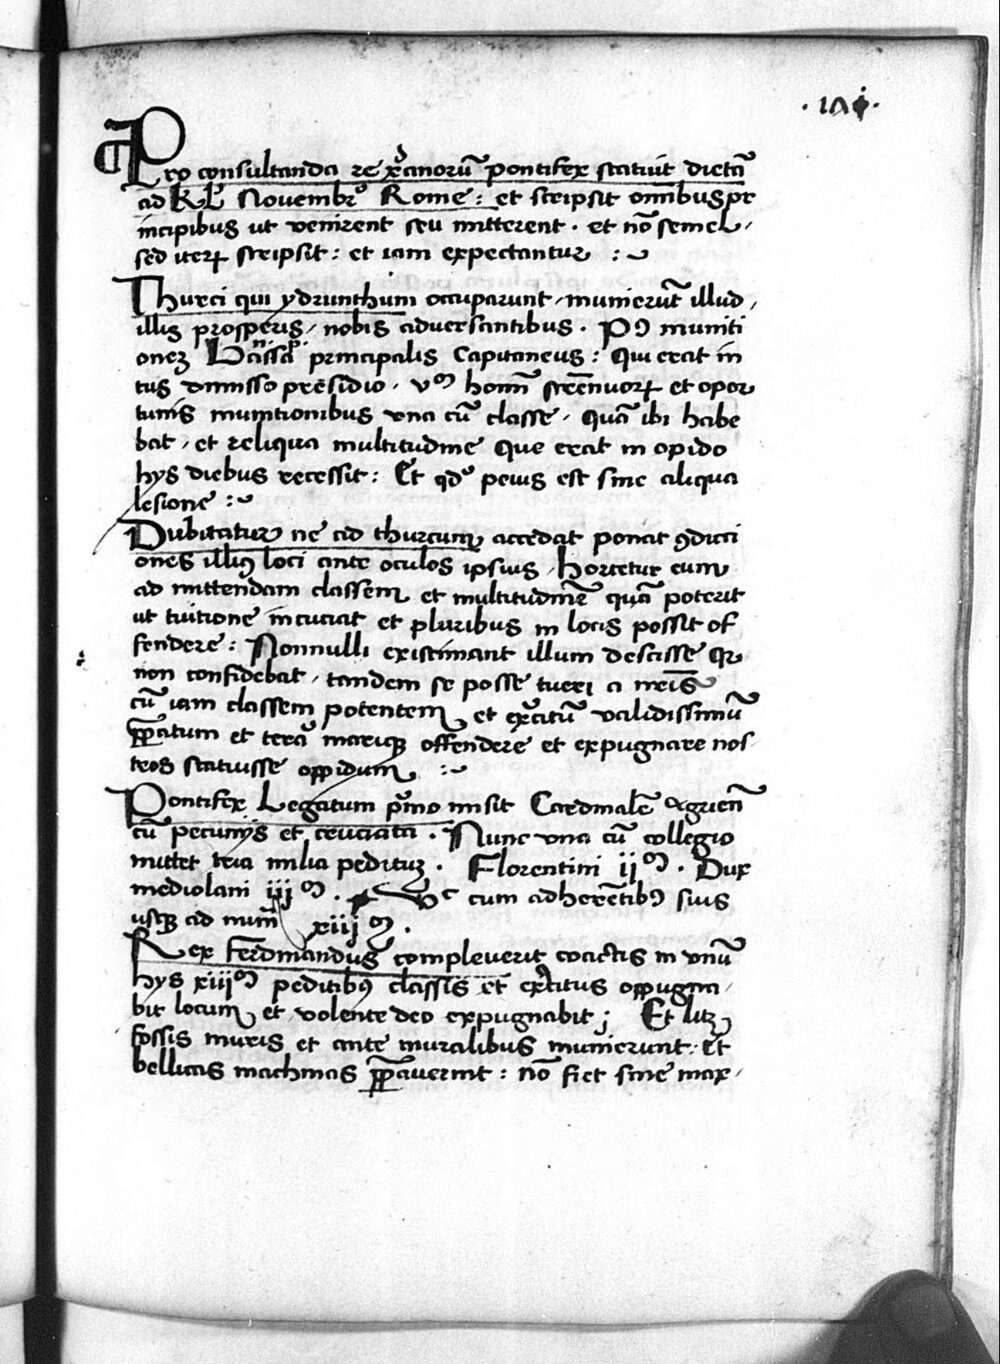 ·171·
Pro consultanda re xp̄anorū pontifex statuit dietā
ad Kl̄ Novembrꝰ Rome : et scripsit omībus pr
incipibus ut venirent seu mitterent · et nō semel /
sed iterꝝ scripsit : et iam expectantur :~
Thurci qui ydrunthum occuparunt / munierūt illud /
illis prosperis / nobis adversantibus · Pꝰ muniti
onez Bassa principalis Capitaneus : Qui erat in
tus dimisso presidio · vᵐ homī strēnuorꝝ et opor
tunis munitionibus una cū classe / Quā ibi habe
bat / et reliqua multitudine Que erat in opido
hys diebus recessit : Et qdᵒ peius est sine aliqua
lesione :~
Dubitatur ne ad thurcum accedat ponat ꝯditi
ones illiꝰ loci ante oculos ipsius / Hortetur eum
ad mittendam classem et multitudinē quā poterit
ut tuitione incutiat et pluribus in locis possit of
fendere : Nonnulli existimant illum descisse qꝛ
non confidebat / tandem se posse tueri a nr̄eis
cū iam classem potentem et exᵉcitū validissimū
ꝑꝑatum et terᵃ mariqꝫ offendere et expugnare nos
tros statuisse oppidum :~
Pontifex Legatum pᵒmo misit Cardinalē Agrienī
cū pecunijs et cruciata · Nunc una cū collegio
mittet tria milia peditum · Florentini ijᵐ · Dux
mediolani iijᵐ · Hᶜ cum adherētibꝰ suis
usqꝫ ad num̄ xiijᵐ ·
Rex Ferdinandus compleverit coactis in unū
hys xiijᵐ peditibꝰ classis et exᵉcitus oppugna /
bit locum et volente deo expugnabit ; Et licꝫ
fossis muris et ante muralibus munierunt · Et
bellicas machinas ꝑꝑaverint : nō fiet sine max /